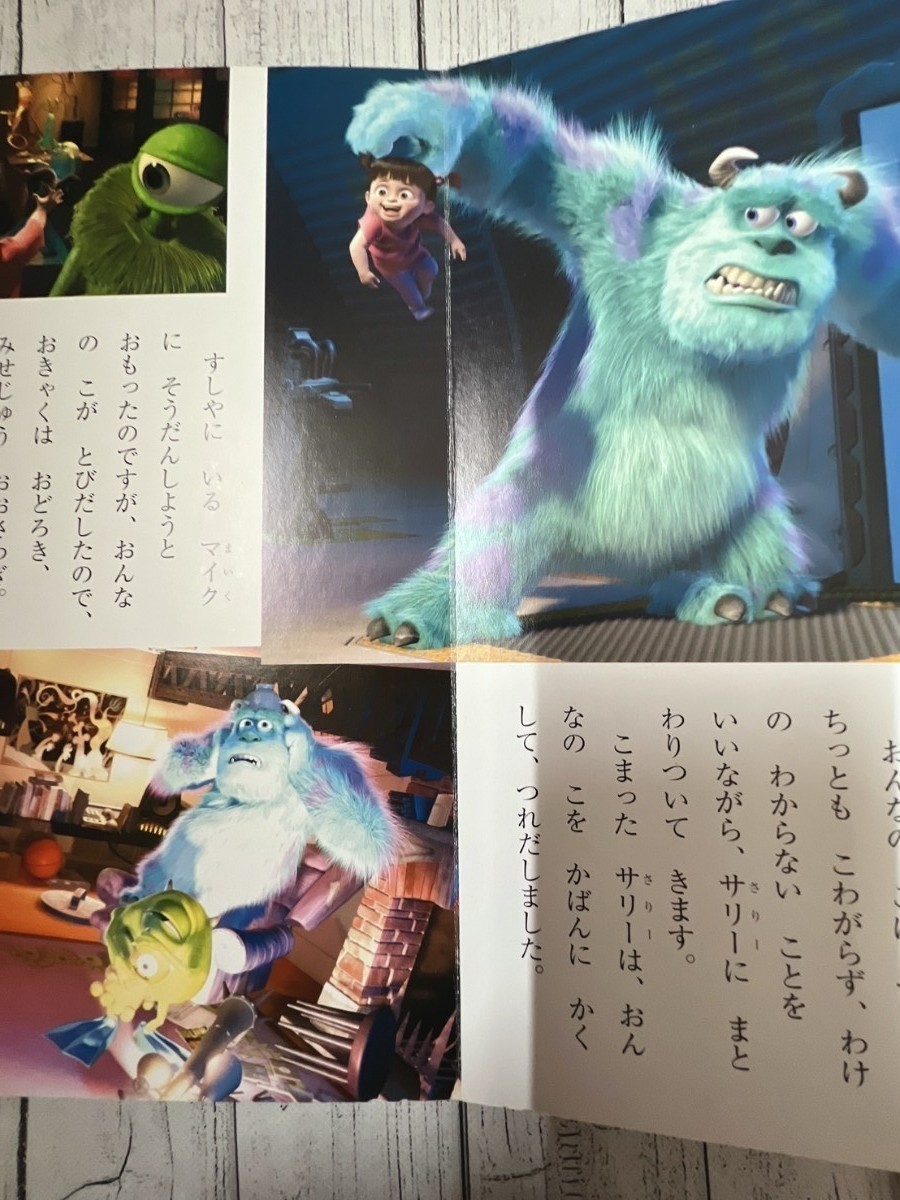 おんなの こは、
ちっとも こわがらず、わけ
の わからない ことを
いいながら、サリーに まと
さりー
わりついて きます。
こまった サリーは、おん
さりー
なの こを かばんに かく
して、つれだしました。
すしやに いる マイク
まいく
に そうだんしようと
おもったのですが、おんな
の こが とびだしたので、
おきゃくは おどろき、
みせじゅう おおさわぎ。